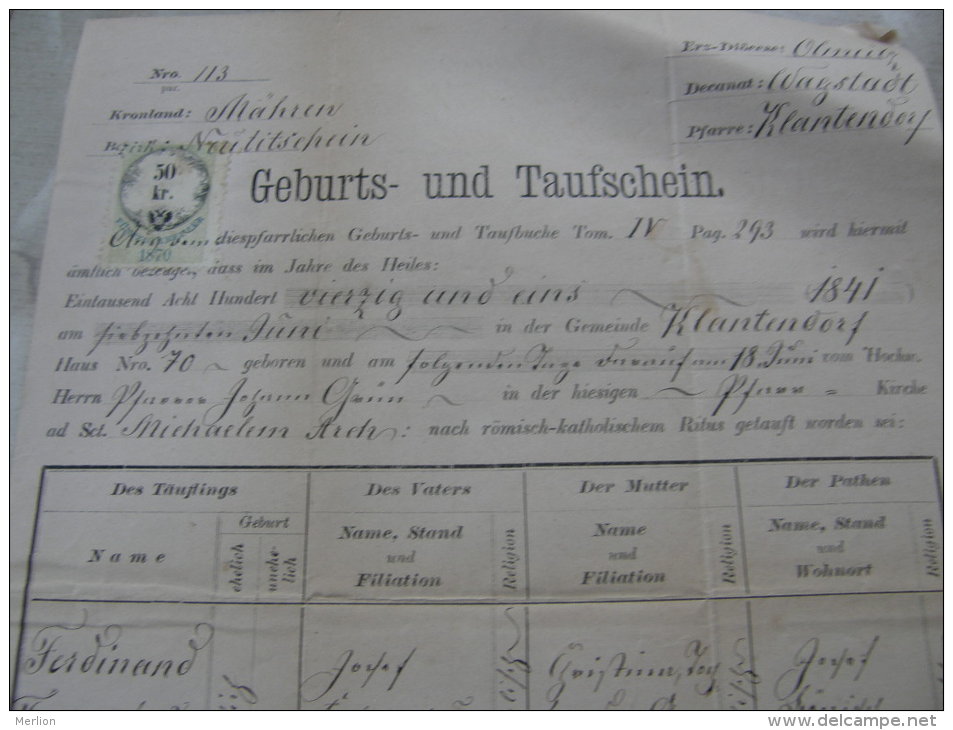 Nro. 113
Erz-Diöcese: Olmütz
Kronland: Mähren
Decanat: Wagstadt
Bezirk: Neutitschein
Pfarre: Klantendorf
50
kr.
1870
Geburts- und Taufschein.
diespfarrlichen Geburts- und Taufbuche Tom. IV Pag. 293 wird hiermit
ämtlich bezeugt, dass im Jahre des Heiles:
Eintausend Acht Hundert vierzig und eins 1841
am siebzehnten Juni in der Gemeinde Klantendorf
Haus Nro. 70 geboren und am folgenden Tage darauf am 18. Juni vom Hochw.
Herrn Pfarrer Johann Grün in der hiesigen Pfarr = Kirche
ad Sct. Michaelem Arch: nach römisch-katholischem Ritus getauft worden sei:
Des Täuflings
Des Vaters
Der Mutter
Der Pathen
Name
Geburt
ehelich
unehe-
lich
Name, Stand
und
Filiation
Religion
Name
und
Filiation
Religion
Name, Stand
und
Wohnort
Religion
Ferdinand
Josef
Josef
Merlion
www.delcampe.net